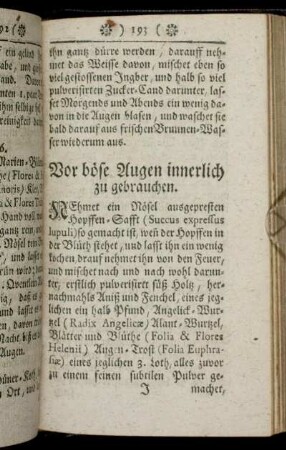 ❀ ) 193 ( ❀
ihn gantz dürre werden, darauff neh-
met das Weisse davon, mischet eben so
viel gestossenen Ingber, und halb so viel
pulverisirten Zucker-Cand darunter, las-
set Morgends und Abends ein wenig da-
von in die Augen blasen, und waschet sie
bald darauf aus frischen Brunnen-Was-
ser wiederum aus.
Vor böse Augen innerlich
zu gebrauchen.
NEhmet ein Nösel ausgepresten
Hopffen-Safft (Succus expressus
lupuli) so gemacht ist, weñ der Hopffen in
der Blüth stehet, und lasst ihn ein wenig
kochen, drauf nehmet ihn von den Feuer,
und mischet nach und nach wohl darun-
ter, erstlich pulverisirt süß Holtz, her-
nachmahls Aniß und Fenchel, eines jeg-
lichen ein halb Pfund, Angelick-Wur-
tzel (Radix Angelicæ) Alant-Wurtzel,
Blätter und Blüthe (Folia & Flores
Helenii) Augen-Trost (Folia Euphra-
siæ) eines jeglichen 3. Loth, alles zuvor
zu einem feinen subtilen Pulver ge-
J machet,